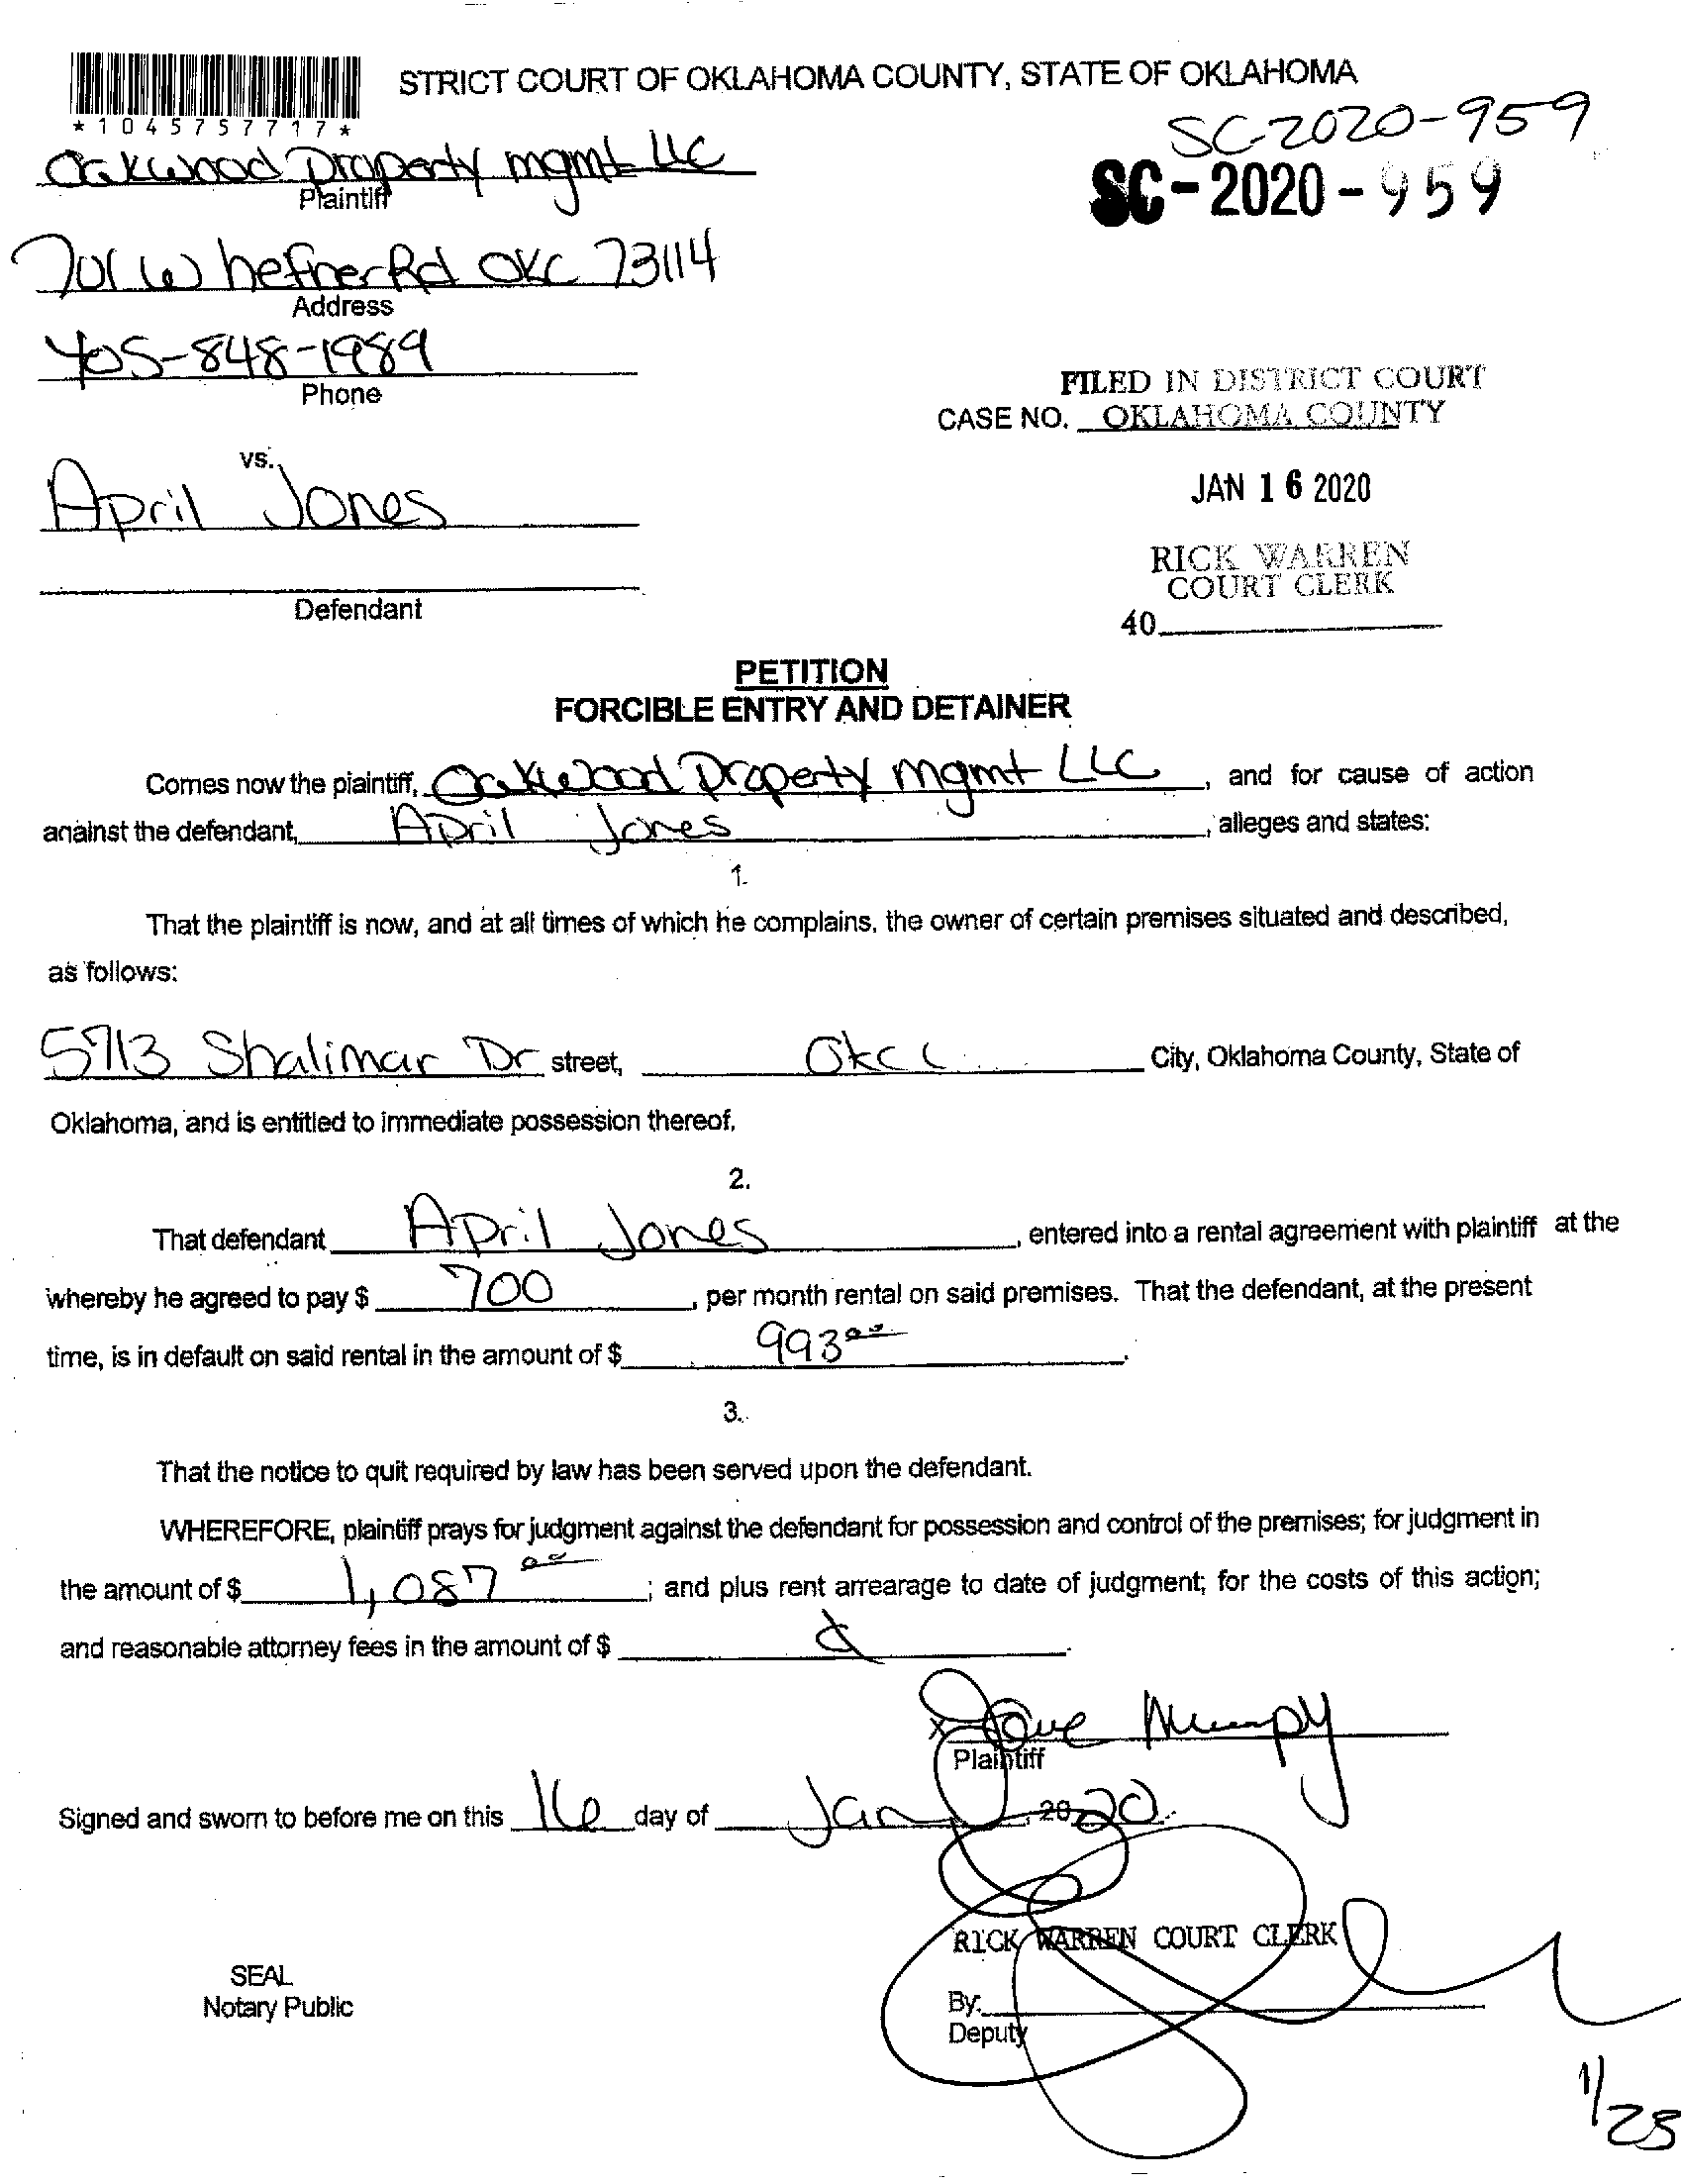 STRICT COURT OF OKLAHOMA COUNTY, STATE OF OKLAHOMA
*1045757717*
SC-2020-959
Oakwood Property mgmt LLC
Plaintiff
SC-2020-959
701 W hefner Rd OKC 73114
Address
405-848-1989
Phone
FILED IN DISTRICT COURT
CASE NO. OKLAHOMA COUNTY
vs.
April Jones
JAN 16 2020
RICK WARREN
COURT CLERK
Defendant
40
PETITION
FORCIBLE ENTRY AND DETAINER
Comes now the plaintiff, Oakwood Property Mgmt LLC, and for cause of action
against the defendant, April Jones, alleges and states:
1.
That the plaintiff is now, and at all times of which he complains, the owner of certain premises situated and described,
as follows:
5713 Shalimar Dr street, Okc City, Oklahoma County, State of
Oklahoma, and is entitled to immediate possession thereof.
2.
That defendant April Jones, entered into a rental agreement with plaintiff at the
whereby he agreed to pay $ 700, per month rental on said premises. That the defendant, at the present
time, is in default on said rental in the amount of $ 993.00.
3.
That the notice to quit required by law has been served upon the defendant.
WHEREFORE, plaintiff prays for judgment against the defendant for possession and control of the premises; for judgment in
the amount of $ 1,087 00; and plus rent arrearage to date of judgment; for the costs of this action;
and reasonable attorney fees in the amount of $
x
Plaintiff
Signed and sworn to before me on this 16 day of Jan, 2020.
RICK WARREN COURT CLERK
SEAL
Notary Public
By:
Deputy
1/23